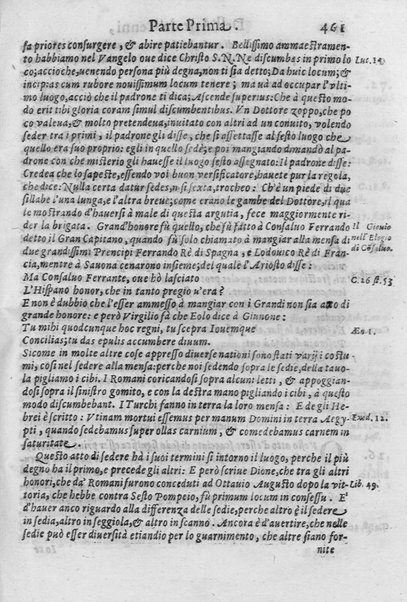 Parte Prima. 461
sa priores consurgere, & abire patiebantur. Bellissimo ammaestramen-
to habbiamo nel Vangelo oue dice Christo S. N. Ne discumbas in primo lo
co; acciochè, uenendo persona più degna, non ti sia detto; Da huic locum; & Luc. 14.
incipias cum rubore nouissimum locum tenere; ma uà ad occupar l'vlti
mo luogo, acciò che il padrone ti dica; Ascende superius: Che à questo mo
do erit tibi gloria coram simul discumbentibus. Vn Dottore zoppo, che po
co valeua, & molto pretendeua; inuitato con altri ad un conuito, volendo
seder tra i primi, il padrone gli disse, che si assettasse al sesto luogo che
quello era suo proprio: egli in quello sedè; e poi mangiando dimandò al pa
drone con che misterio gli hauesse il luogo sesto assegnato: Il padrone disse:
Credea che lo sapeste, essendo voi buon versificatore, hauete pur la régola,
che dice: Nulla certa datur sedes, nisi sexta, trocheo: Ch'è un piede di due
sillabe l'una lunga, e l'altra breue; come erano le gambe del Dottore, il qua
le mostrando d'hauersi à male di questa argutia, fece maggiormente ri-
der la brigata. Grand'honore fù quello, che fù fatto à Consaluo Ferrando Il Giouio
detto il Gran Capitano, quando fù solo chiamato à mangiar alla mensa di nell'Elogio
due grandissimi Prencipi Ferrando Rè di Spagna, e Lodouico Rè di Fran- di Cōsaluo.
cia, mentre à Sauona cenarono insieme; del quale l'Ariosto disse:
Ma Consaluo Ferrante, oue hò lasciato C. 26 st. 53
L'Hispano honor, che in tanto pregio u'era?
E non è dubbio che l'esser ammesso à mangiar con i Grandi non sia atto di
grande honore: e però Virgilio fà che Eolo dice à Giunone:
Tu mihi quodcunque hoc regni, tu scepra Iouemque Æn 1.
Concilias; tu das epulis accumbere diuum.
Sicome in molte altre cose appresso diuerse nationi sono stati varij i costu
mi, così nel sedere alla mensa: perche noi sedendo sopra le sedie, della tauo
la pigliamo i cibi. I Romani coricandosi sopra alcuni letti, & appoggian-
dosi sopra il sinistro gomito, e con la destra mano pigliando i cibi, à questo
modo discumbebant. I Turchi fanno in terra la loro mensa: E degli He-
brei è scritto: Vtinam mortui essemus per manum Domini in terra Aegy- Exod. 12.
pti, quando sedebamus super ollas carnium, & comedebamus carnem in
saturitate.
Questo atto di sedere hà i suoi termini sì intorno il luogo, perche il più
degno ha il primo, e precede gli altri: E però scriue Dione, che tra gli altri
honori, che da' Romani furono conceduti ad Ottauio Augusto dopo la vit- Lib. 49.
toria, che hebbe contro Sesto Pompeio, fù primum locum in consessu. E'
d'hauer anco riguardo alla differenza delle sedie, perche altro è il sedere
in sedia, altro in seggiola, & altro in scanno. Ancora è d'auertire, che nelle
sedie può esser diuersità etiandio per lo guarnimento, che altre siano for-
nite